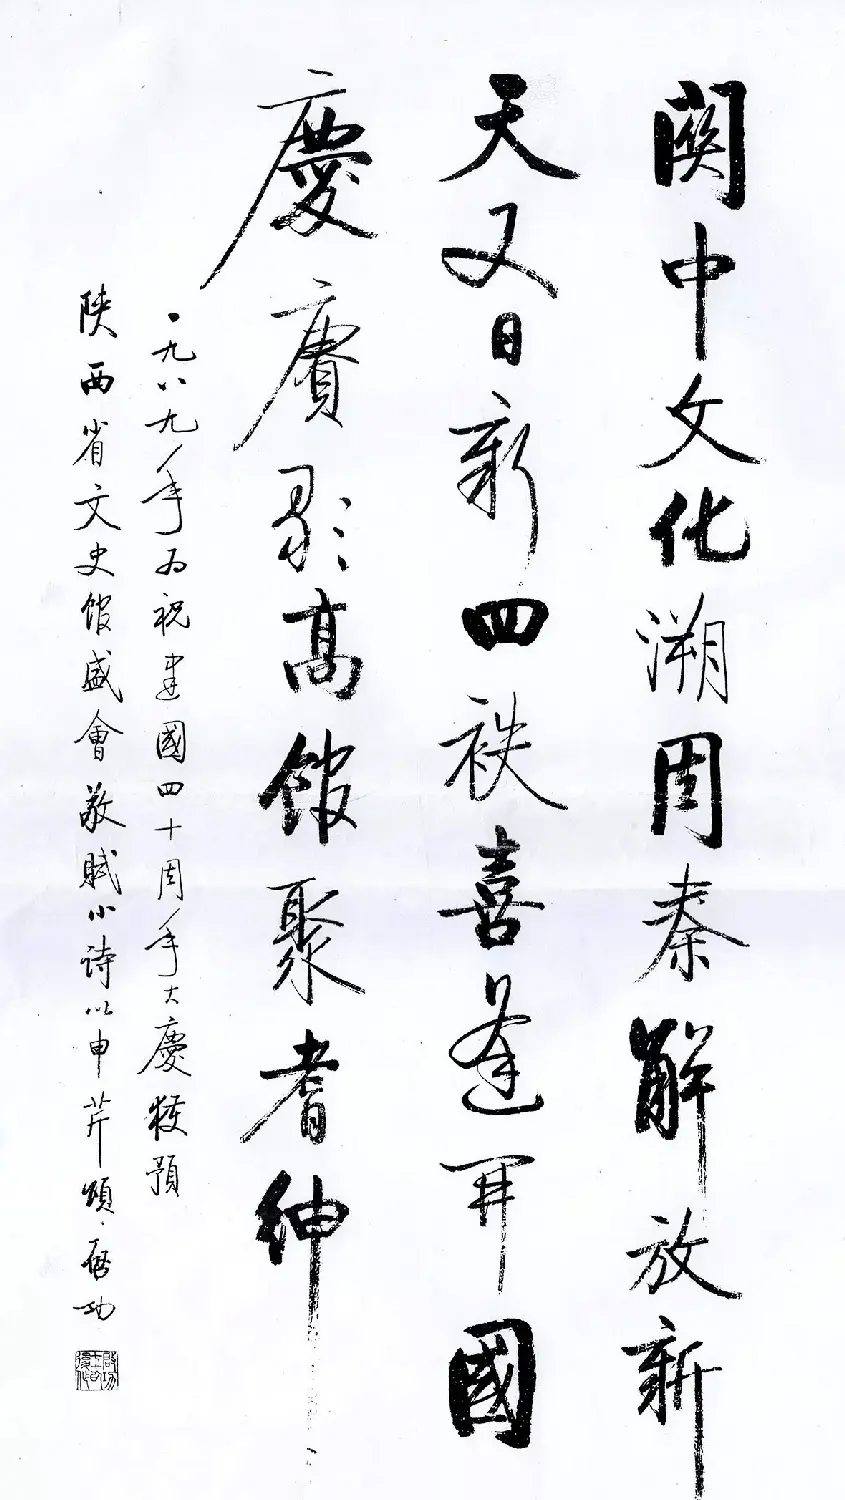 関中文化溯周秦解放新
天又日新四祑喜逢開國
慶賡歌高館聚耆紳
一九八九年为祝建國四十周年大慶獲預
陝西省文史館盛會敬賦小詩以申芹頌啟功